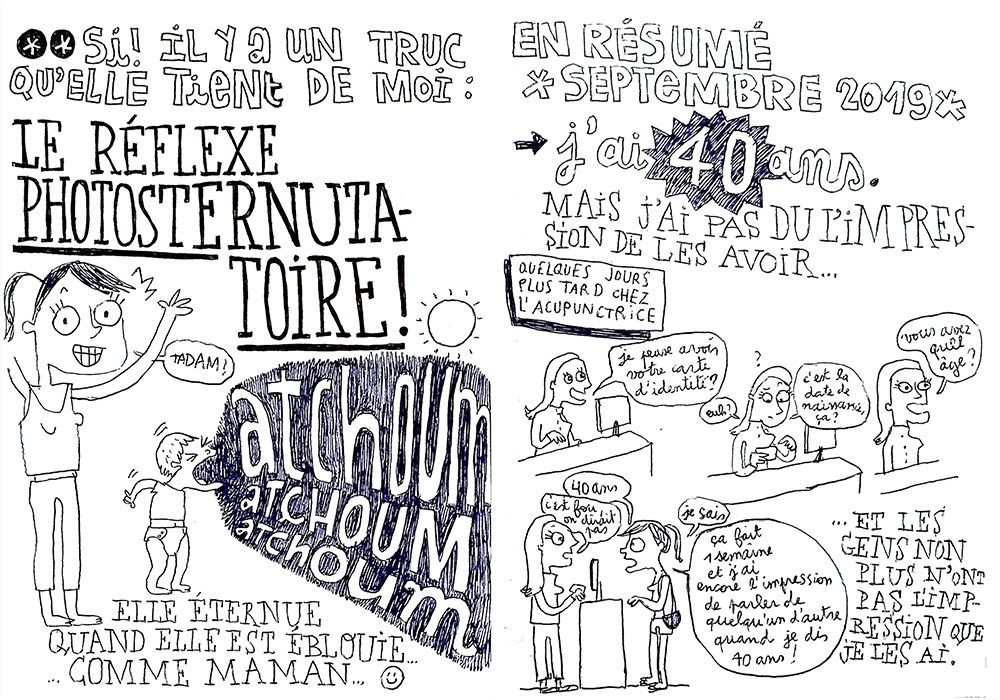 Si! iL Y a UN TRUC
QU'ELLE Tient DE MOI :
LE RÉFLEXE
PHOTOSTERNUTA-
TOIRE!
TADAM!
atchoum
atCHOUM
atchoum
ELLE ÉTERNUE
QUAND ELLE EST ÉBLOUIE...
... COMME MAMAN...
EN RÉSUMÉ
* SEPTEMBRE 2019 *
j'ai 40 ans.
MAIS J'AI PAS DU L'IMPRES-
SION DE LES AVOIR...
QUELQUES JOURS
PLUS TARD CHEZ
L'ACUPUNCTRICE
je peux avoir
votre carte
d'identité?
?
euh!
c'est la
date de
naissance,
ça?
vous avez
quel
âge?
40 ans
c'est fou,
on dirait
pas
je sais
ça fait
1 semaine
et j'ai
encore l'impression
de parler de
quelqu'un d'autre
quand je dis
40 ans!
... ET LES
GENS NON
PLUS N'ONT
PAS L'IMP-
RESSION QUE
JE LES AI.